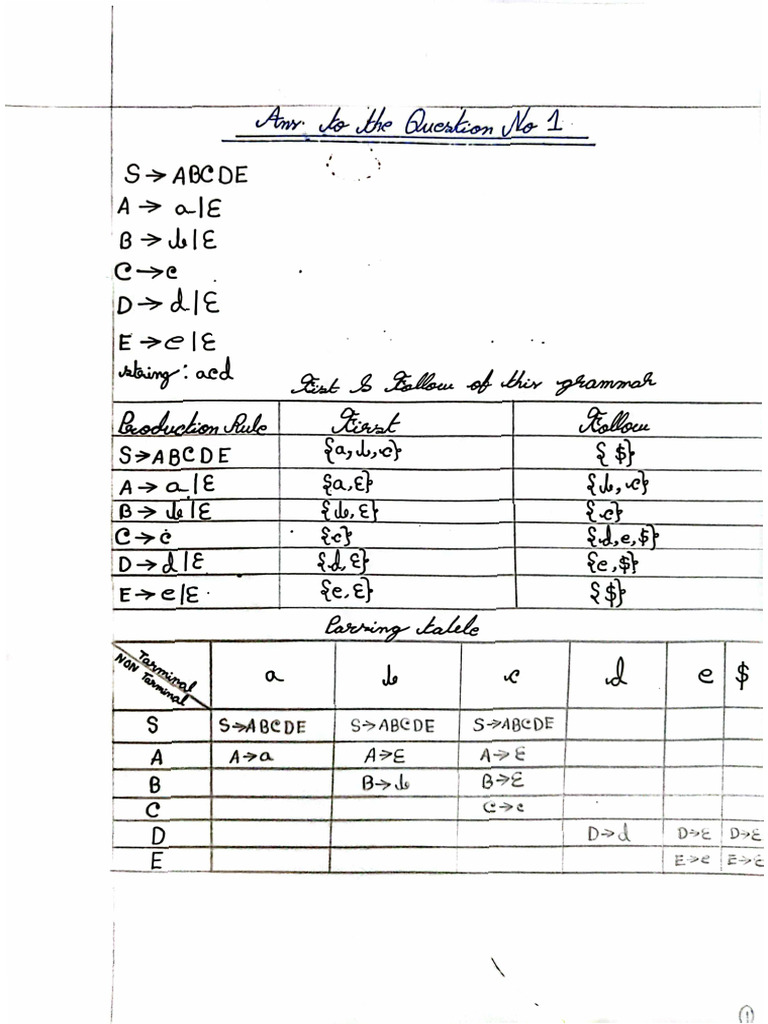 Ans. to the Question No 1
S → ABCDE
A → a|ε
B → b|ε
C → c
D → d|ε
E → e|ε
string: acd
First & Follow of this grammar
Production Rule First Follow
S→ABCDE {a, b, c} {$}
A → a|ε {a, ε} {b, c}
B → b|ε {b, ε} {c}
C → c {c} {d, e, $}
D → d|ε {d, ε} {e, $}
E → e|ε {e, ε} {$}
Parsing table
Tarminal
NON Tarminal a b c d e $
S S→ABCDE S→ABCDE S→ABCDE
A A→a A→ε A→ε
B B→b B→ε
C C→c
D D→d D→ε D→ε
E E→e E→ε
1